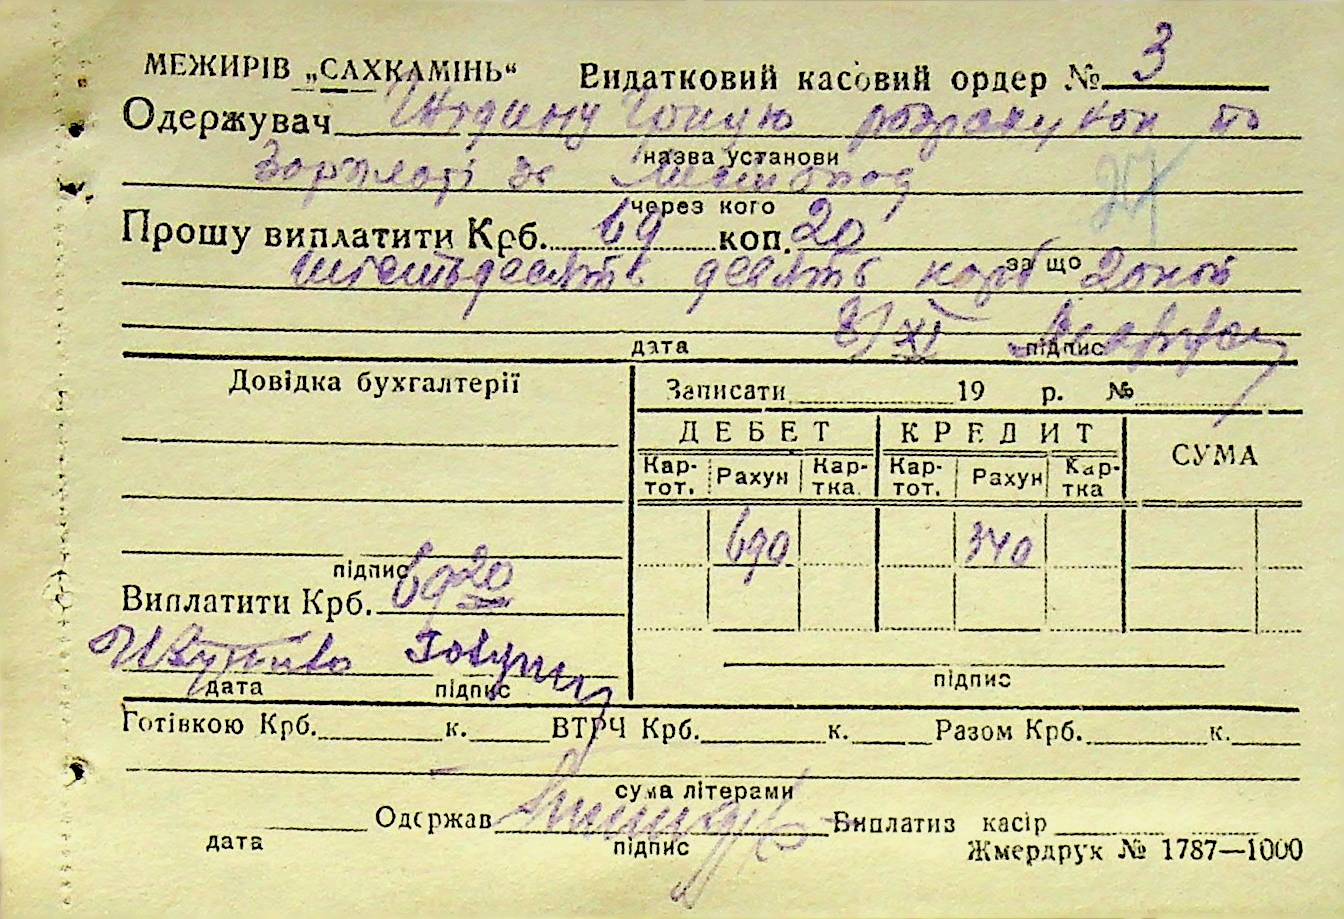 МЕЖИРІВ „САХКАМІНЬ“ Видатковий касовий ордер № 3
Одержувач розрахунок по
назва установи
Зарплаті за листопад
27
через кого
Прошу виплатити Крб. 69 коп. 20
за що
шістьдесять девять карб 20 коп
8/XI
дата підпис
Довідка бухгалтерії
Записати 19 р. №
ДЕБЕТ КРЕДИТ СУМА
Кар-тот. Рахун Кар-тка Кар-тот. Рахун Кар-тка
690 340
підпис
Виплатити Крб. 69 20
дата підпис
підпис
Готівкою Крб. к. ВТРЧ Крб. к. Разом Крб. к.
сума літерами
Одержав Виплатив касір
дата підпис
Жмердрук № 1787—1000